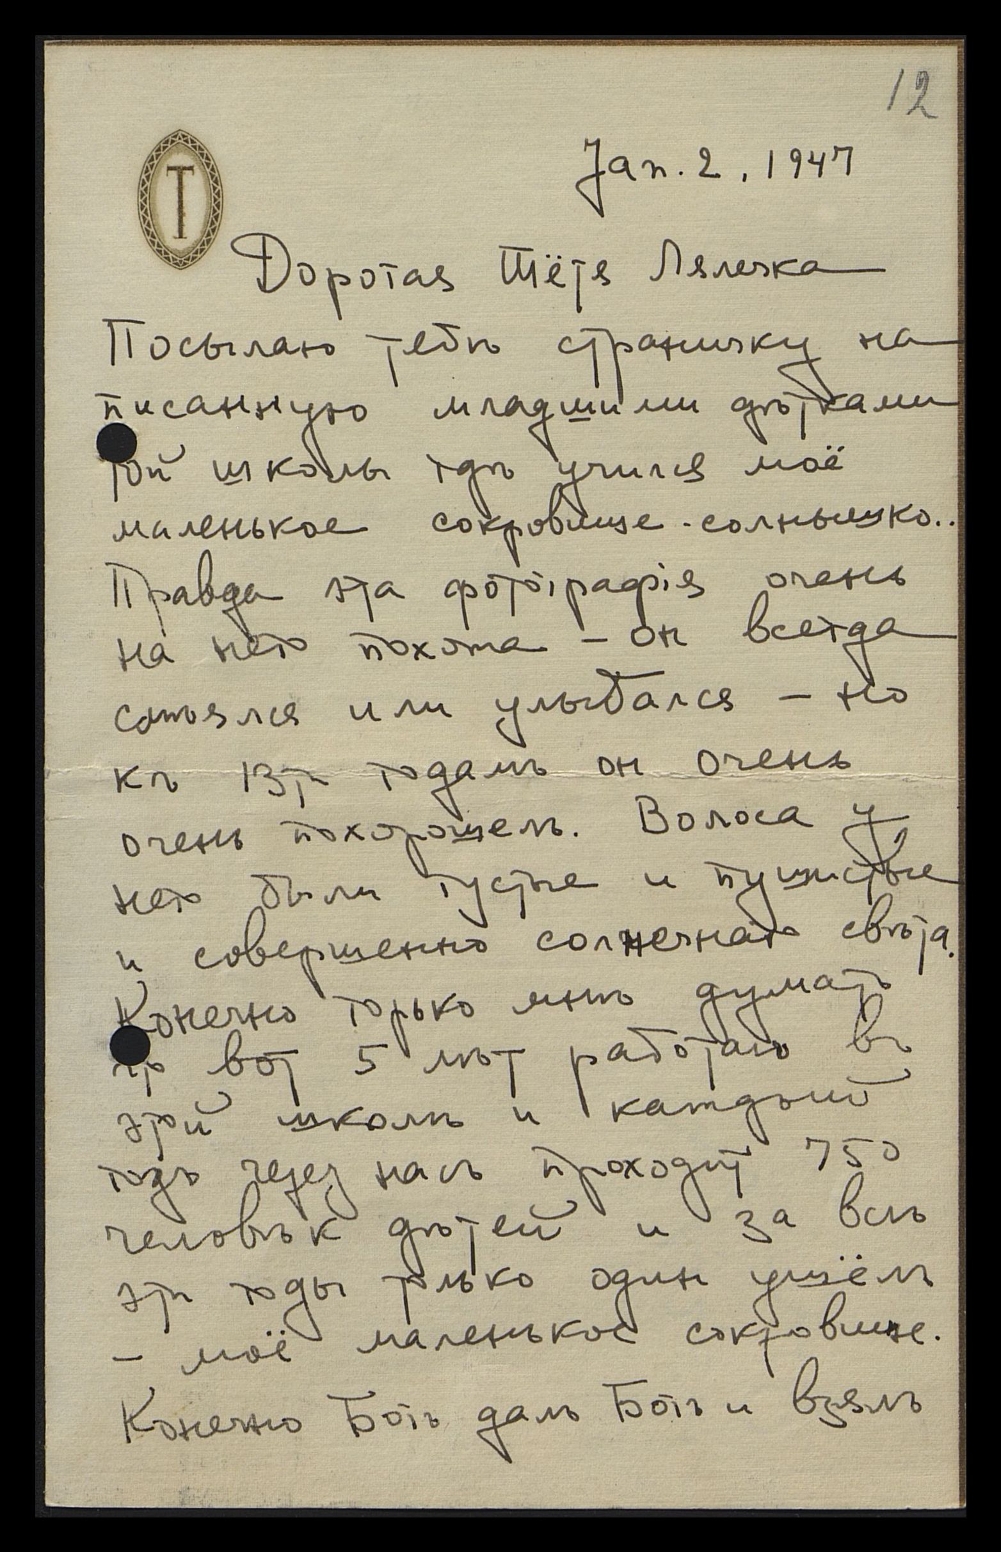 12
T
Jan. 2, 1947
Дорогая Тётя Лялечка
Посылаю тебѣ страничку на
писанную младшими дѣтками
той школы гдѣ учился моё
маленькое сокровище - солнышко..
Правда эта фотографія очень
на него похожа – он всегда
смѣялся или улыбался – но
къ 13ти годамъ он очень
очень похорошелъ. Волоса у
него были густые и пушистые
и совершенно солнечнаго свѣта.
Конечно горько мнѣ думать
что вот 5 лѣт работаю въ
этой школѣ и каждый
годъ через насъ проходит 750
человѣк дѣтей и за всѣ
эти годы только один ушёлъ
– моё маленькое сокровище.
Конечно Богъ далъ Богъ и взялъ